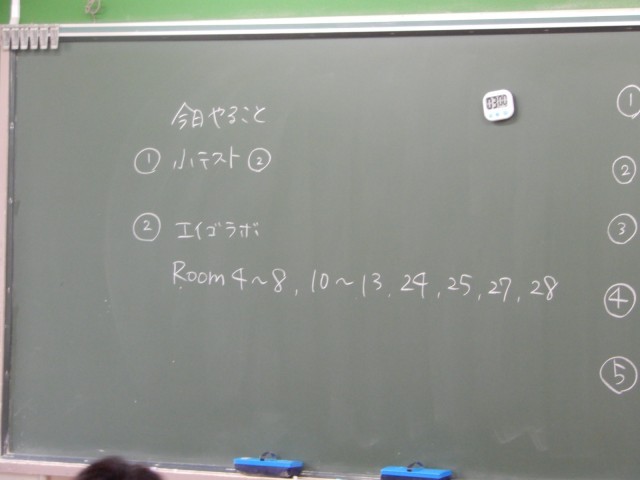 今日やること
① 小テスト②
② エイゴラボ
Room 4～8, 10～13, 24, 25, 27, 28
①
②
③
④
⑤